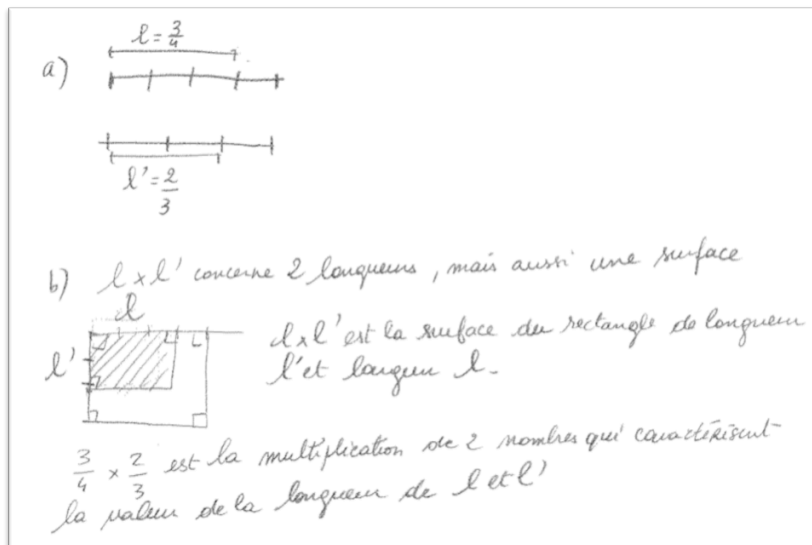 l = 3/4
a)
l' = 2/3
b) l x l' concerne 2 longueurs, mais aussi une surface
l
l'
l x l' est la surface du rectangle de longueur
l' et largeur l.
3/4 x 2/3 est la multiplication de 2 nombres qui caractérisent
la valeur de la longueur de l et l'